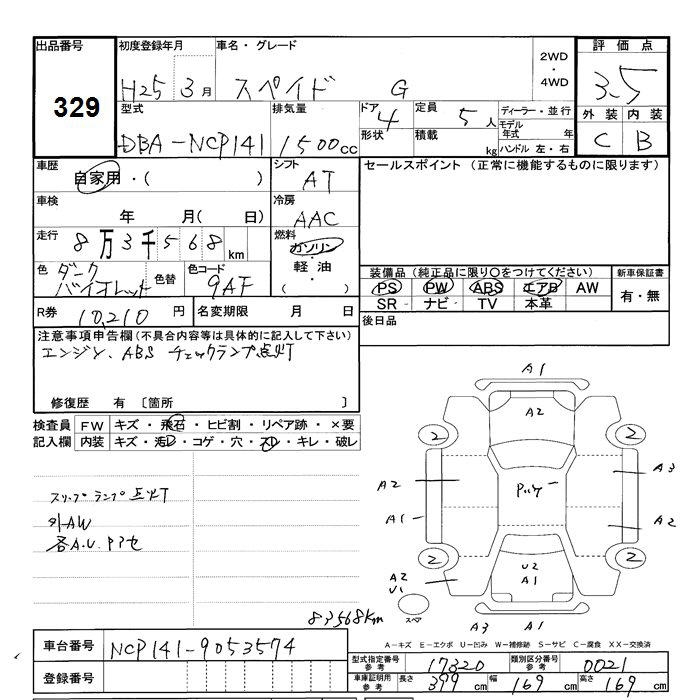 出品番号 初度登録年月 車名・グレード 2WD・4WD 評価点
329 H25 3月 スペイド G 3.5
型式 排気量 ドア 4 定員 5人 ディーラー・並行 外装 内装
DBA-NCP141 1500cc 形状 積載 kg モデル年式 年 C B
ハンドル 左・右
車歴 シフト セールスポイント (正常に機能するものに限ります)
自家用・( ) AT
車検 冷房
年 月( 日) AAC
走行 燃料
8万3千568km ガソリン・軽油・( )
色 ダークバイオレット 色替 色コード 9AF
装備品(純正品に限り○をつけてください) 新車保証書
PS PW ABS エアB AW 有・無
SR ナビ TV 本革
R券 10,210円 名変期限 月 日 後日品
注意事項申告欄(不具合内容等は具体的に記入して下さい)
エンジン、ABS チェックランプ点灯
修復歴 有 〔箇所 〕
検査員 FW キズ・飛石・ヒビ割・リペア跡・×要
記入欄 内装 キズ・汚れ・コゲ・穴・スレ・キレ・破レ
スリップランプ点灯
外AW
各A.U.Pアセ
83568km
A1
A2
2 2
A3
A2
A1
A2
2 2
A2
U1
U2
A1
スペア
A3 A1
A-キズ E-エクボ U-凹み W-補修跡 S-サビ C-腐食 XX-交換済
車台番号 NCP141-9053574
登録番号
型式指定番号 参考 17320 類別区分番号 参考 0021
車庫証明用 参考 長さ 399cm 幅 169cm 高さ 169cm